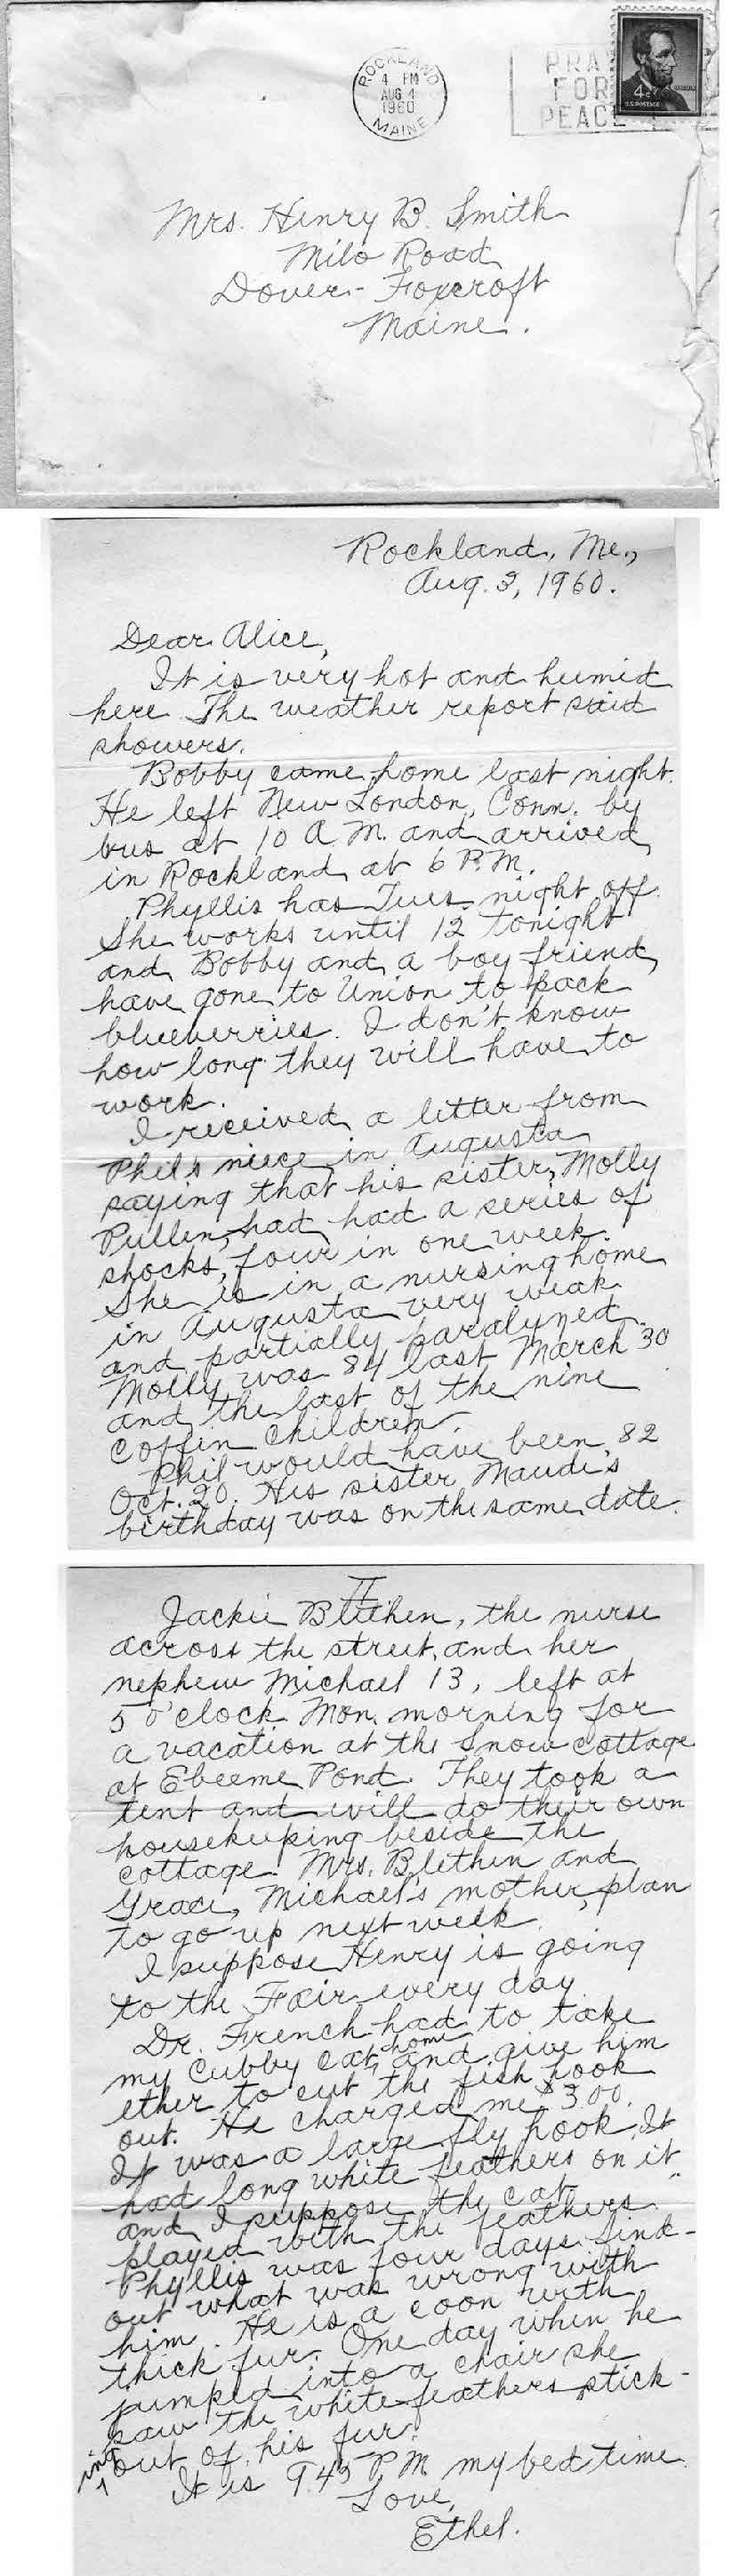 ROCKLAND
4 PM
AUG 4
1960
MAINE
PRAY
FOR
PEACE
4¢
U.S. POSTAGE
Mrs. Henry B. Smith
Milo Road
Dover-Foxcroft
Maine.
Rockland, Me.,
Aug. 3, 1960.
Dear Alice,
It is very hot and humid
here. The weather report said
showers.
Bobby came home last night.
He left New London, Conn. by
bus at 10 A.M. and arrived
in Rockland at 6 P.M.
Phyllis has Tues. night off.
She works until 12 tonight
and Bobby and a boy friend
have gone to Union to pack
blueberries. I don't know
how long they will have to
work.
I received a letter from
Phil's niece in Augusta
saying that his sister, Molly
Pullen, had had a series of
shocks, four in one week.
She is in a nursing home
in Augusta very weak
and partially paralyzed.
Molly was 84 last March 30
and the last of the nine
Coffin children.
Phil would have been 82
Oct. 20. His sister Maude's
birthday was on the same date.
II
Jackie Blethen, the nurse
across the street, and her
nephew Michael 13, left at
5 o'clock Mon. morning for
a vacation at the Snow cottage
at Ebeeme Pond. They took a
tent and will do their own
housekeeping beside the
cottage. Mrs. Blethen and
Grace, Michael's mother, plan
to go up next week.
I suppose Henry is going
to the Fair every day.
Dr. French had to take
my Cubby cat home and give him
ether to cut the fish hook
out. He charged me $3.00.
It was a large fly hook. It
had long white feathers on it
and I suppose the cat
played with the feathers.
Phyllis was four days find-
out what was wrong with
him. He is a coon with
thick fur. One day when he
jumped into a chair she
saw the white feathers stick-
ing out of his fur.
It is 9.45 P.M. my bed time.
Love,
Ethel.